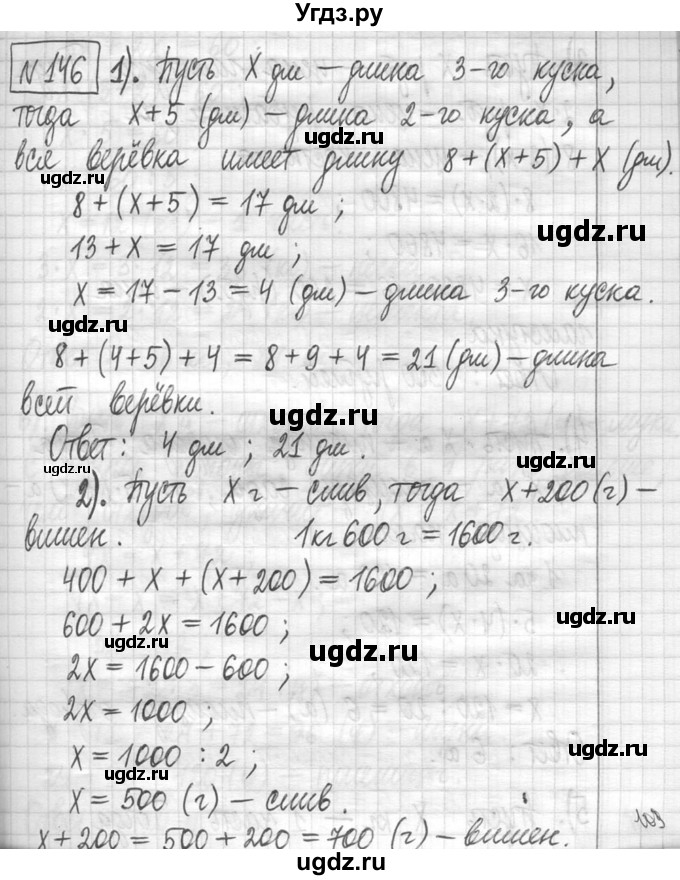 Угдз.ру
№146 1). Пусть x дм – длина 3-го куска,
тогда x+5 (дм) – длина 2-го куска, а
вся верёвка имеет длину 8+(x+5)+x (дм).
ugdz.ru
8+(x+5)=17 дм;
ugdz.ru
13+x=17 дм;
x=17-13=4 (дм) – длина 3-го куска.
ugdz.ru
8+(4+5)+4=8+9+4=21(дм) – длина
всей верёвки.
ugdz.ru
Ответ: 4 дм; 21 дм.
ugdz.ru
2). Пусть x г – слив, тогда x+200(г) –
вишен. 1кг 600 г = 1600 г.
400+x+(x+200)=1600;
600+2x=1600;
ugdz.ru
ugdz.ru
2x=1600-600;
ugdz.ru
2x=1000;
x=1000:2;
ugdz.ru
ugdz.ru
x=500 (г) – слив.
x+200=500+200=700 (г) – вишен.
109
ugdz.ru